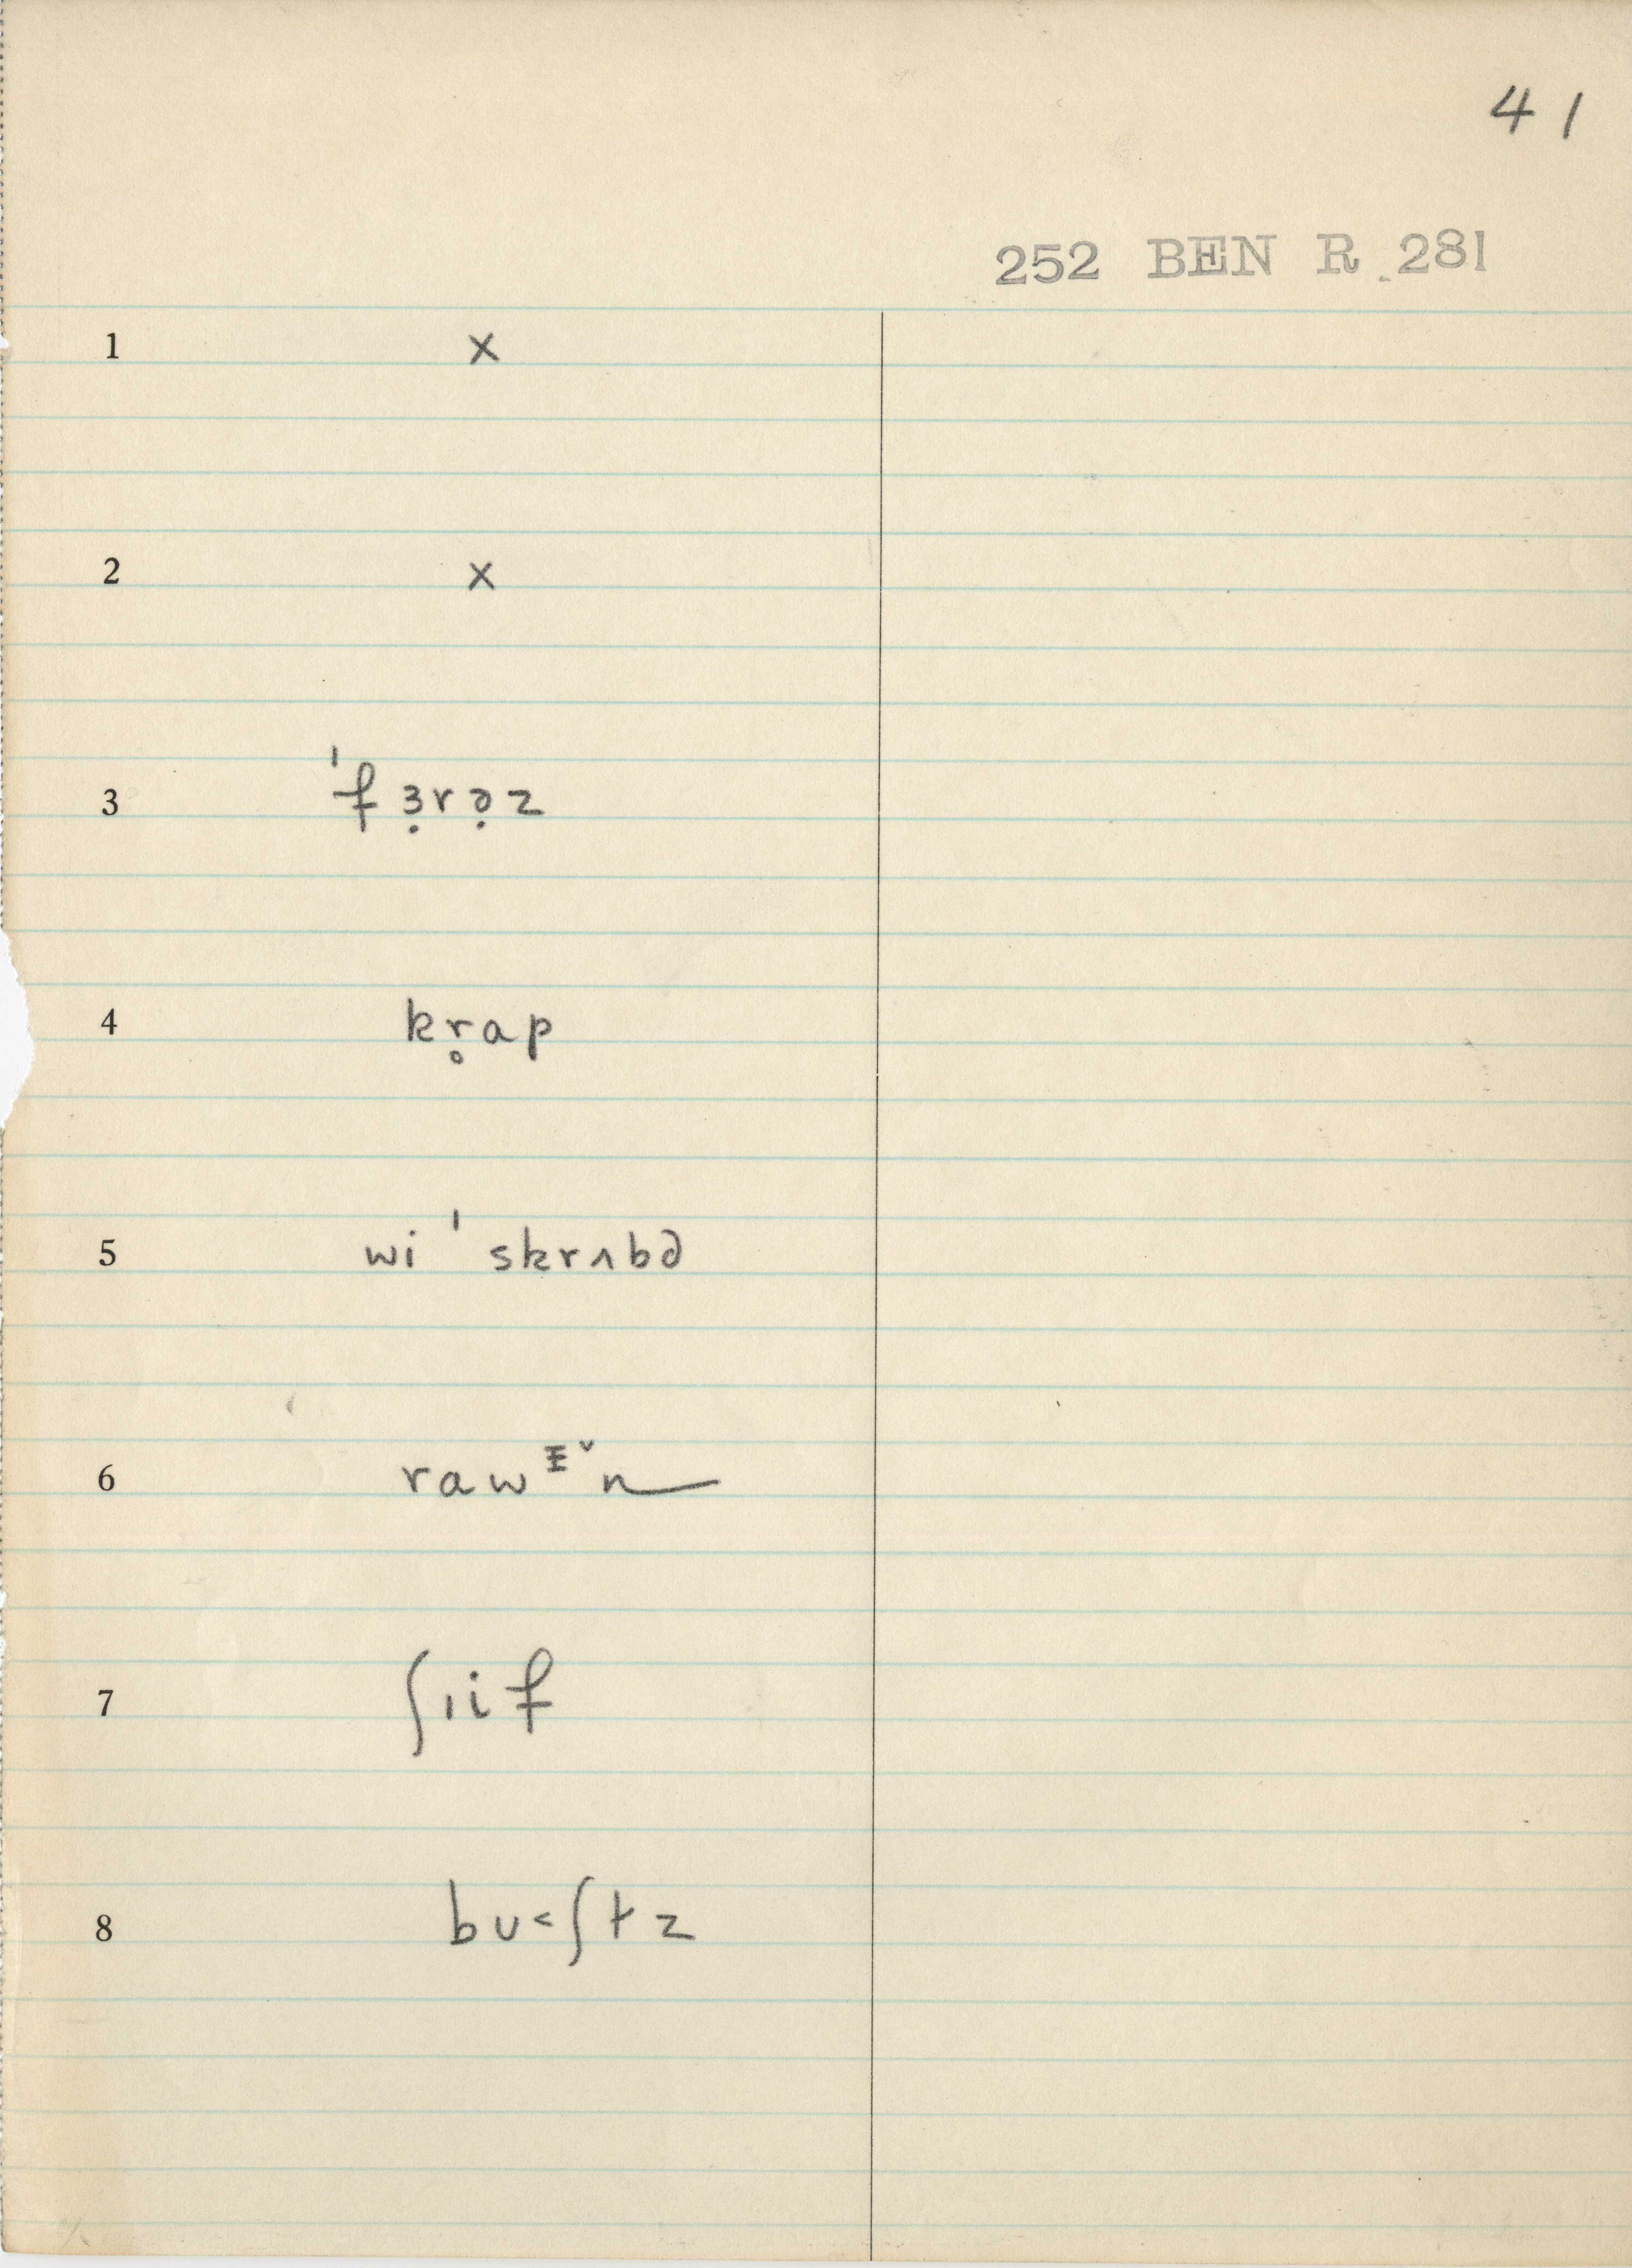 41
252 BEN R 281
1 x
2 x
3 ˈfɜ̣rə̣z
4 kr̥ap
5 wi ˈskrʌbə
6 raw
7 ʃɪif
8 bʊ˂ʃtz